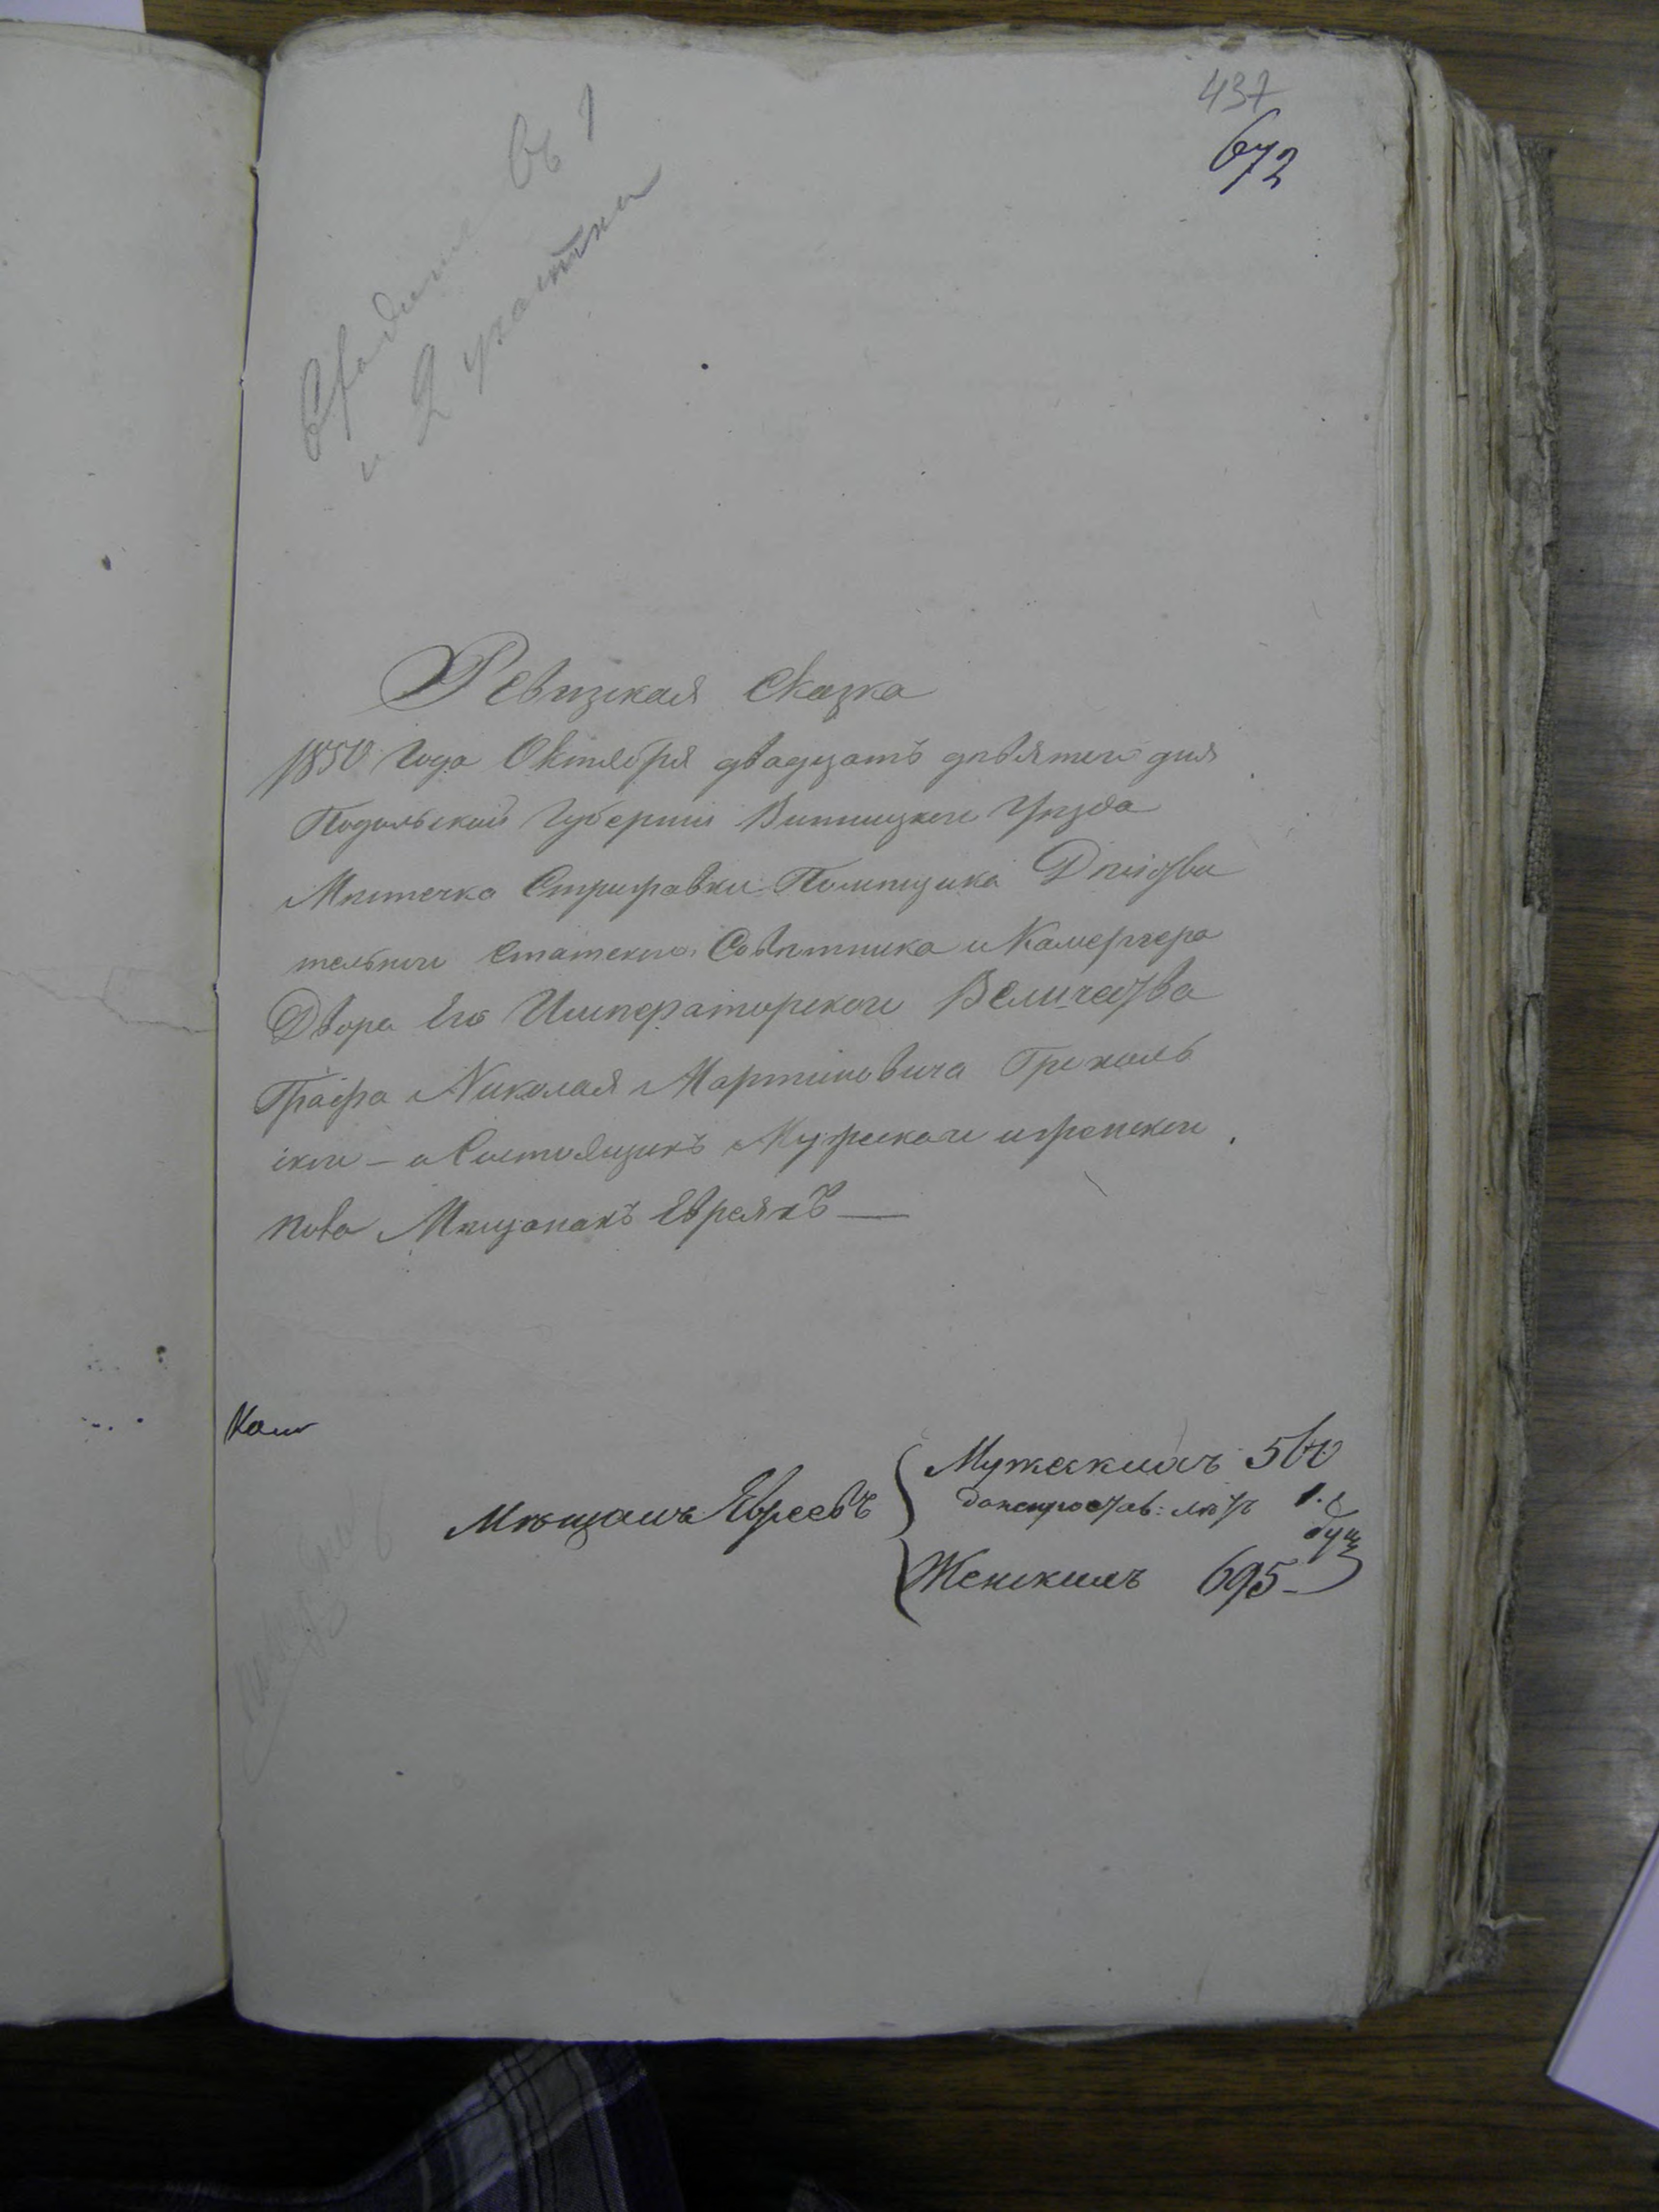 437
672
въ 1
и 2 участки
Ревизкая Сказка
1850 Года Октября двадцать девятого дня
Подольской Губернии Винницкого Уезда
Мястечка Стрижавки Помещика Действи
тельного Статского Советника и Камергера
Двора Его Императорского Величества
Графа Николая Мартиновича Грохоль
ского – о Состоящихъ Мужеского и женского
пола Мещанахъ Евреяхъ —
Мещанъ Евреевъ
Мужескихъ
1.
душ
Женскихъ 695